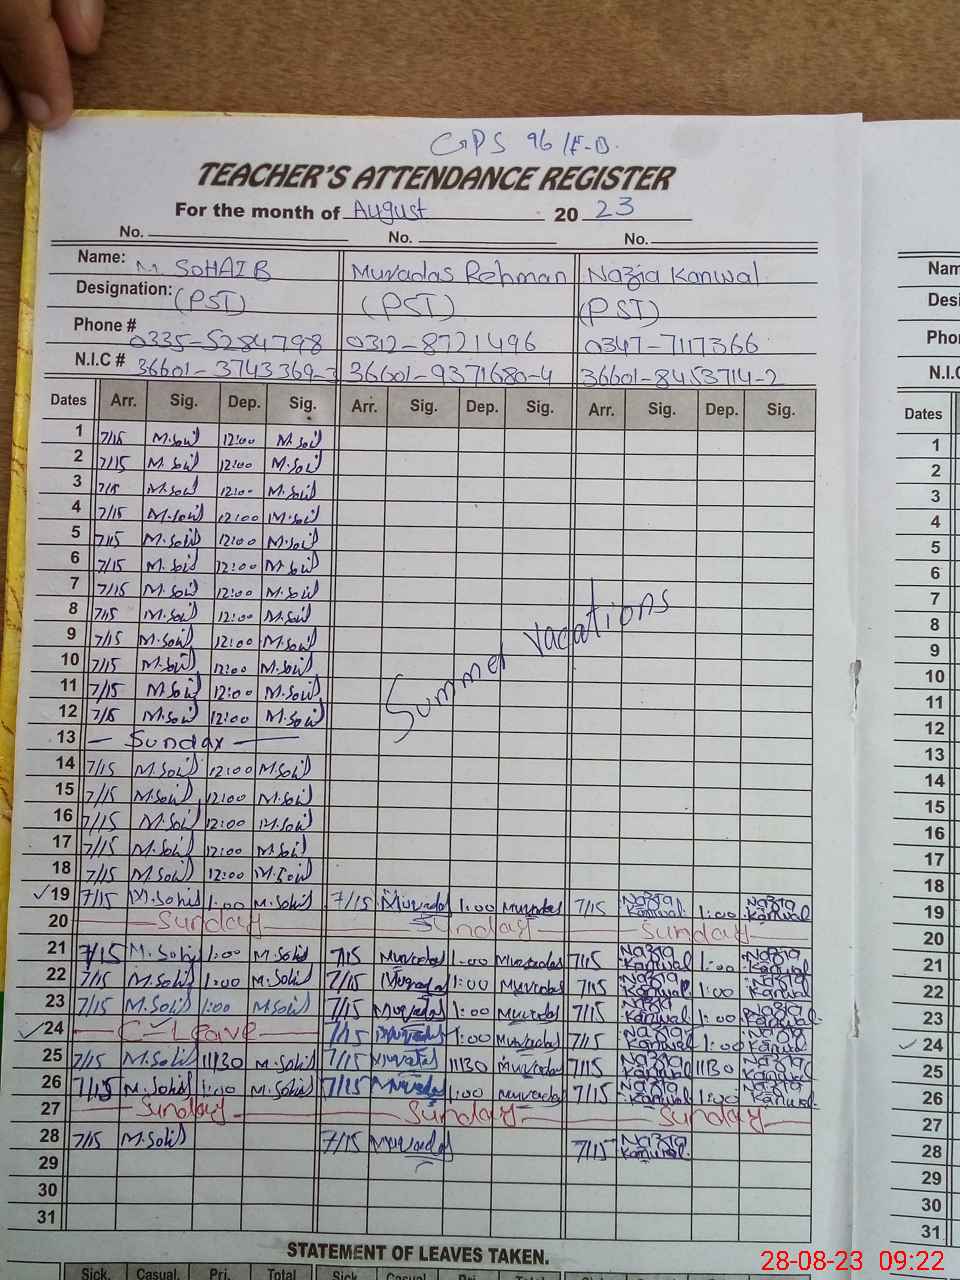 GPS 96/E-B.
TEACHER'S ATTENDANCE REGISTER
For the month of August 2023
No. No. No.
Name: M. SOHAIB Muradas Rehman Nazia Kanwal
Designation: (PST) (PST) (PST)
Phone # 0335-5284798 0312-8721496 0347-7117366
N.I.C # 36601-3743369-3 36601-9371680-4 36601-8453714-2
Dates Arr. Sig. Dep. Sig. Arr. Sig. Dep. Sig. Arr. Sig. Dep. Sig.
1 7/15 M.Sohib 12:00 M.Sohib
2 7/15 M.Sohib 12:00 M.Sohib
3 7/15 M.Sohib 12:00 M.Sohib
4 7/15 M.Sohib 12:00 M.Sohib
5 7/15 M.Sohib 12:00 M.Sohib
6 7/15 M.Sohib 12:00 M.Sohib
7 7/15 M.Sohib 12:00 M.Sohib
8 7/15 M.Sohib 12:00 M.Sohib
9 7/15 M.Sohib 12:00 M.Sohib
10 7/15 M.Sohib 12:00 M.Sohib
11 7/15 M.Sohib 12:00 M.Sohib
12 7/15 M.Sohib 12:00 M.Sohib
Summer vacations
13 Sunday
14 7/15 M.Sohib 12:00 M.Sohib
15 7/15 M.Sohib 12:00 M.Sohib
16 7/15 M.Sohib 12:00 M.Sohib
17 7/15 M.Sohib 12:00 M.Sohib
18 7/15 M.Sohib 12:00 M.Sohib
19 7/15 M.Sohib 1:00 M.Sohib 7/15 Muradas 1:00 Muradas 7/15 Nazia Kanwal 1:00 Nazia Kanwal
20 Sunday Sunday Sunday
21 7/15 M.Sohib 1:00 M.Sohib 7/15 Muradas 1:00 Muradas 7/15 Nazia Kanwal 1:00 Nazia Kanwal
22 7/15 M.Sohib 1:00 M.Sohib 7/15 Muradas 1:00 Muradas 7/15 Nazia Kanwal 1:00 Nazia Kanwal
23 7/15 M.Sohib 1:00 M.Sohib 7/15 Muradas 1:00 Muradas 7/15 Nazia Kanwal 1:00 Nazia Kanwal
24 C-Leave 7/15 Muradas 1:00 Muradas 7/15 Nazia Kanwal 1:00 Nazia Kanwal
25 7/15 M.Sohib 11/30 M.Sohib 7/15 Muradas 11/30 Muradas 7/15 Nazia Kanwal 11/30 Nazia Kanwal
26 7/15 M.Sohib 1:00 M.Sohib 7/15 Muradas 1:00 Muradas 7/15 Nazia Kanwal 1:00 Nazia Kanwal
27 Sunday Sunday Sunday
28 7/15 M.Sohib 7/15 Muradas 7/15 Nazia Kanwal
29
30
31
STATEMENT OF LEAVES TAKEN.
Sick. Casual. Pri. Total Sick. Casual. Pri. Total Sick. Casual. Pri. Total
Dates
1
2
3
4
5
6
7
8
9
10
11
12
13
14
15
16
17
18
19
20
21
22
23
24
25
26
27
28
29
30
31
28-08-23 09:22